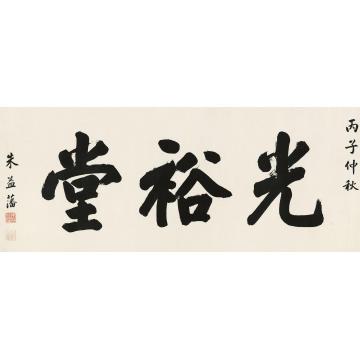 丙子仲秋
光裕堂
朱益藩